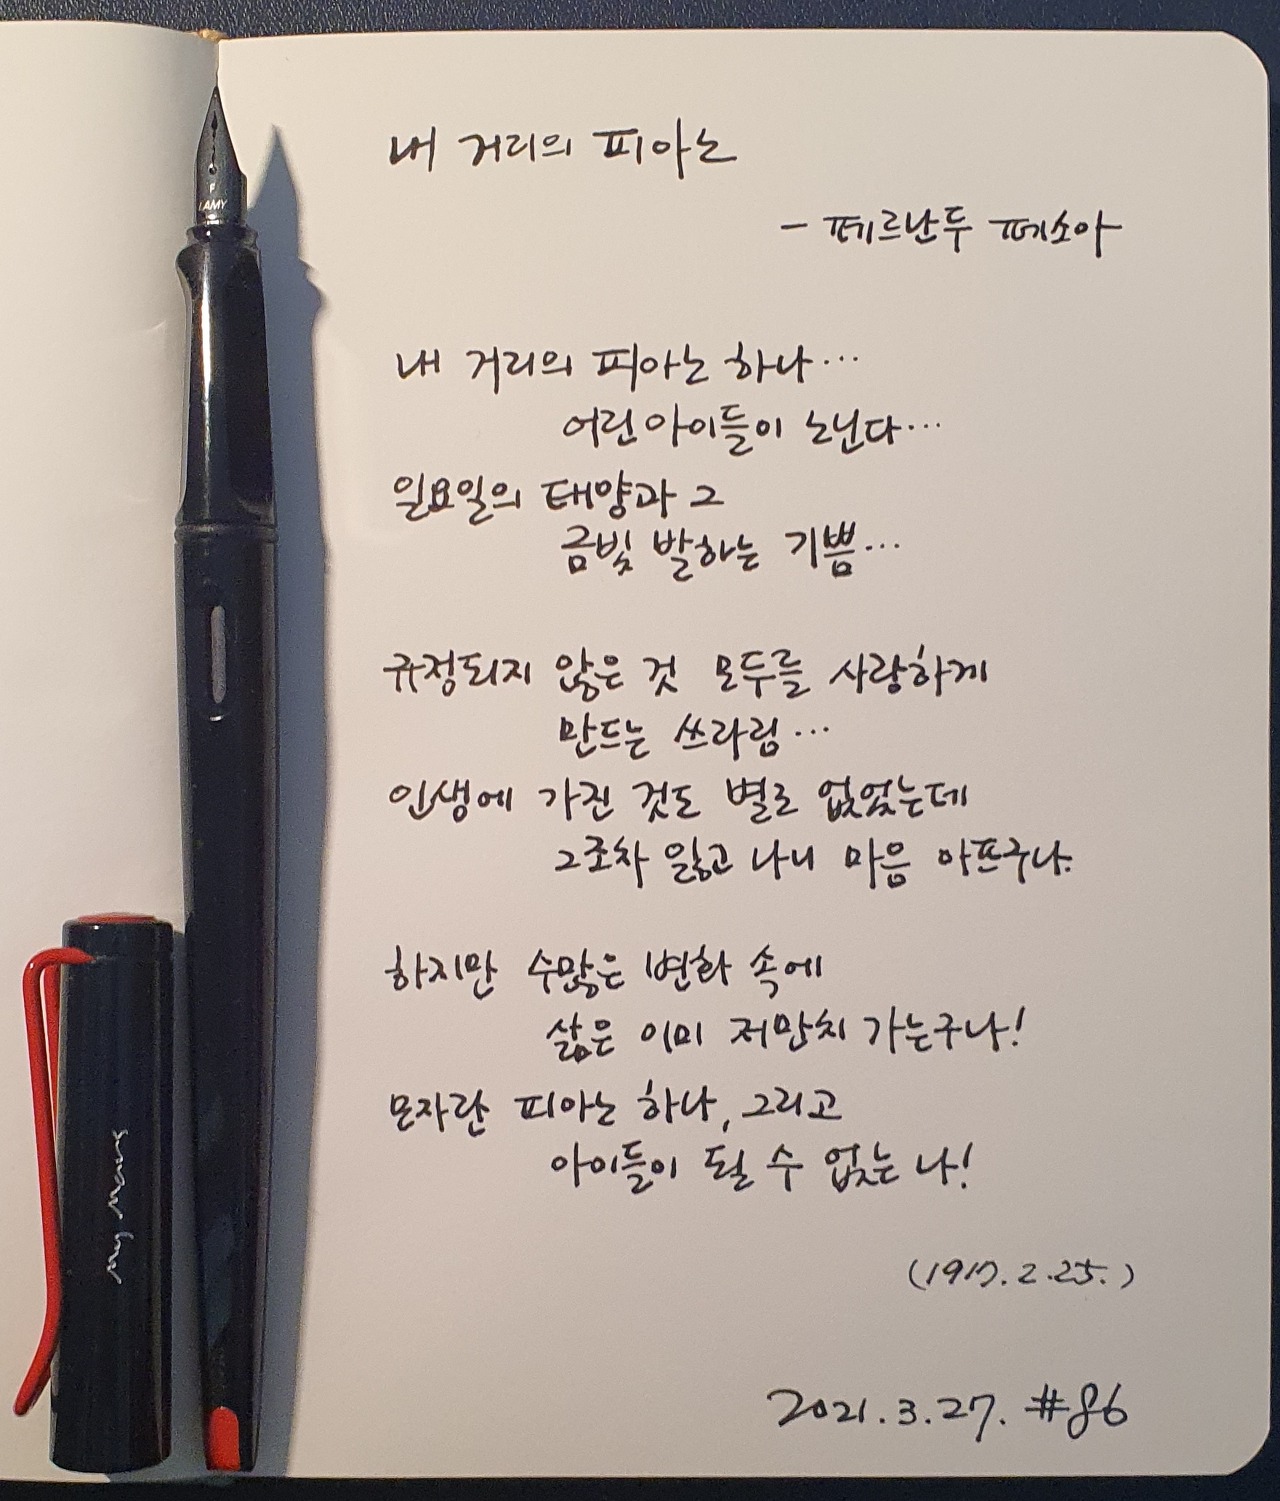 F
LAMY
my nans
내 거리의 피아노
- 페르난두 페소아
내 거리의 피아노 하나...
어린 아이들이 노닌다...
일요일의 태양과 그
금빛 발하는 기쁨...
규정되지 않은 것 모두를 사랑하게
만드는 쓰라림...
인생에 가진 것도 별로 없었는데
그조차 잃고 나니 마음 아프구나.
하지만 수많은 변화 속에
삶은 이미 저만치 가는구나!
모자란 피아노 하나, 그리고
아이들이 될 수 없는 나!
(1917.2.25.)
2021.3.27. #86